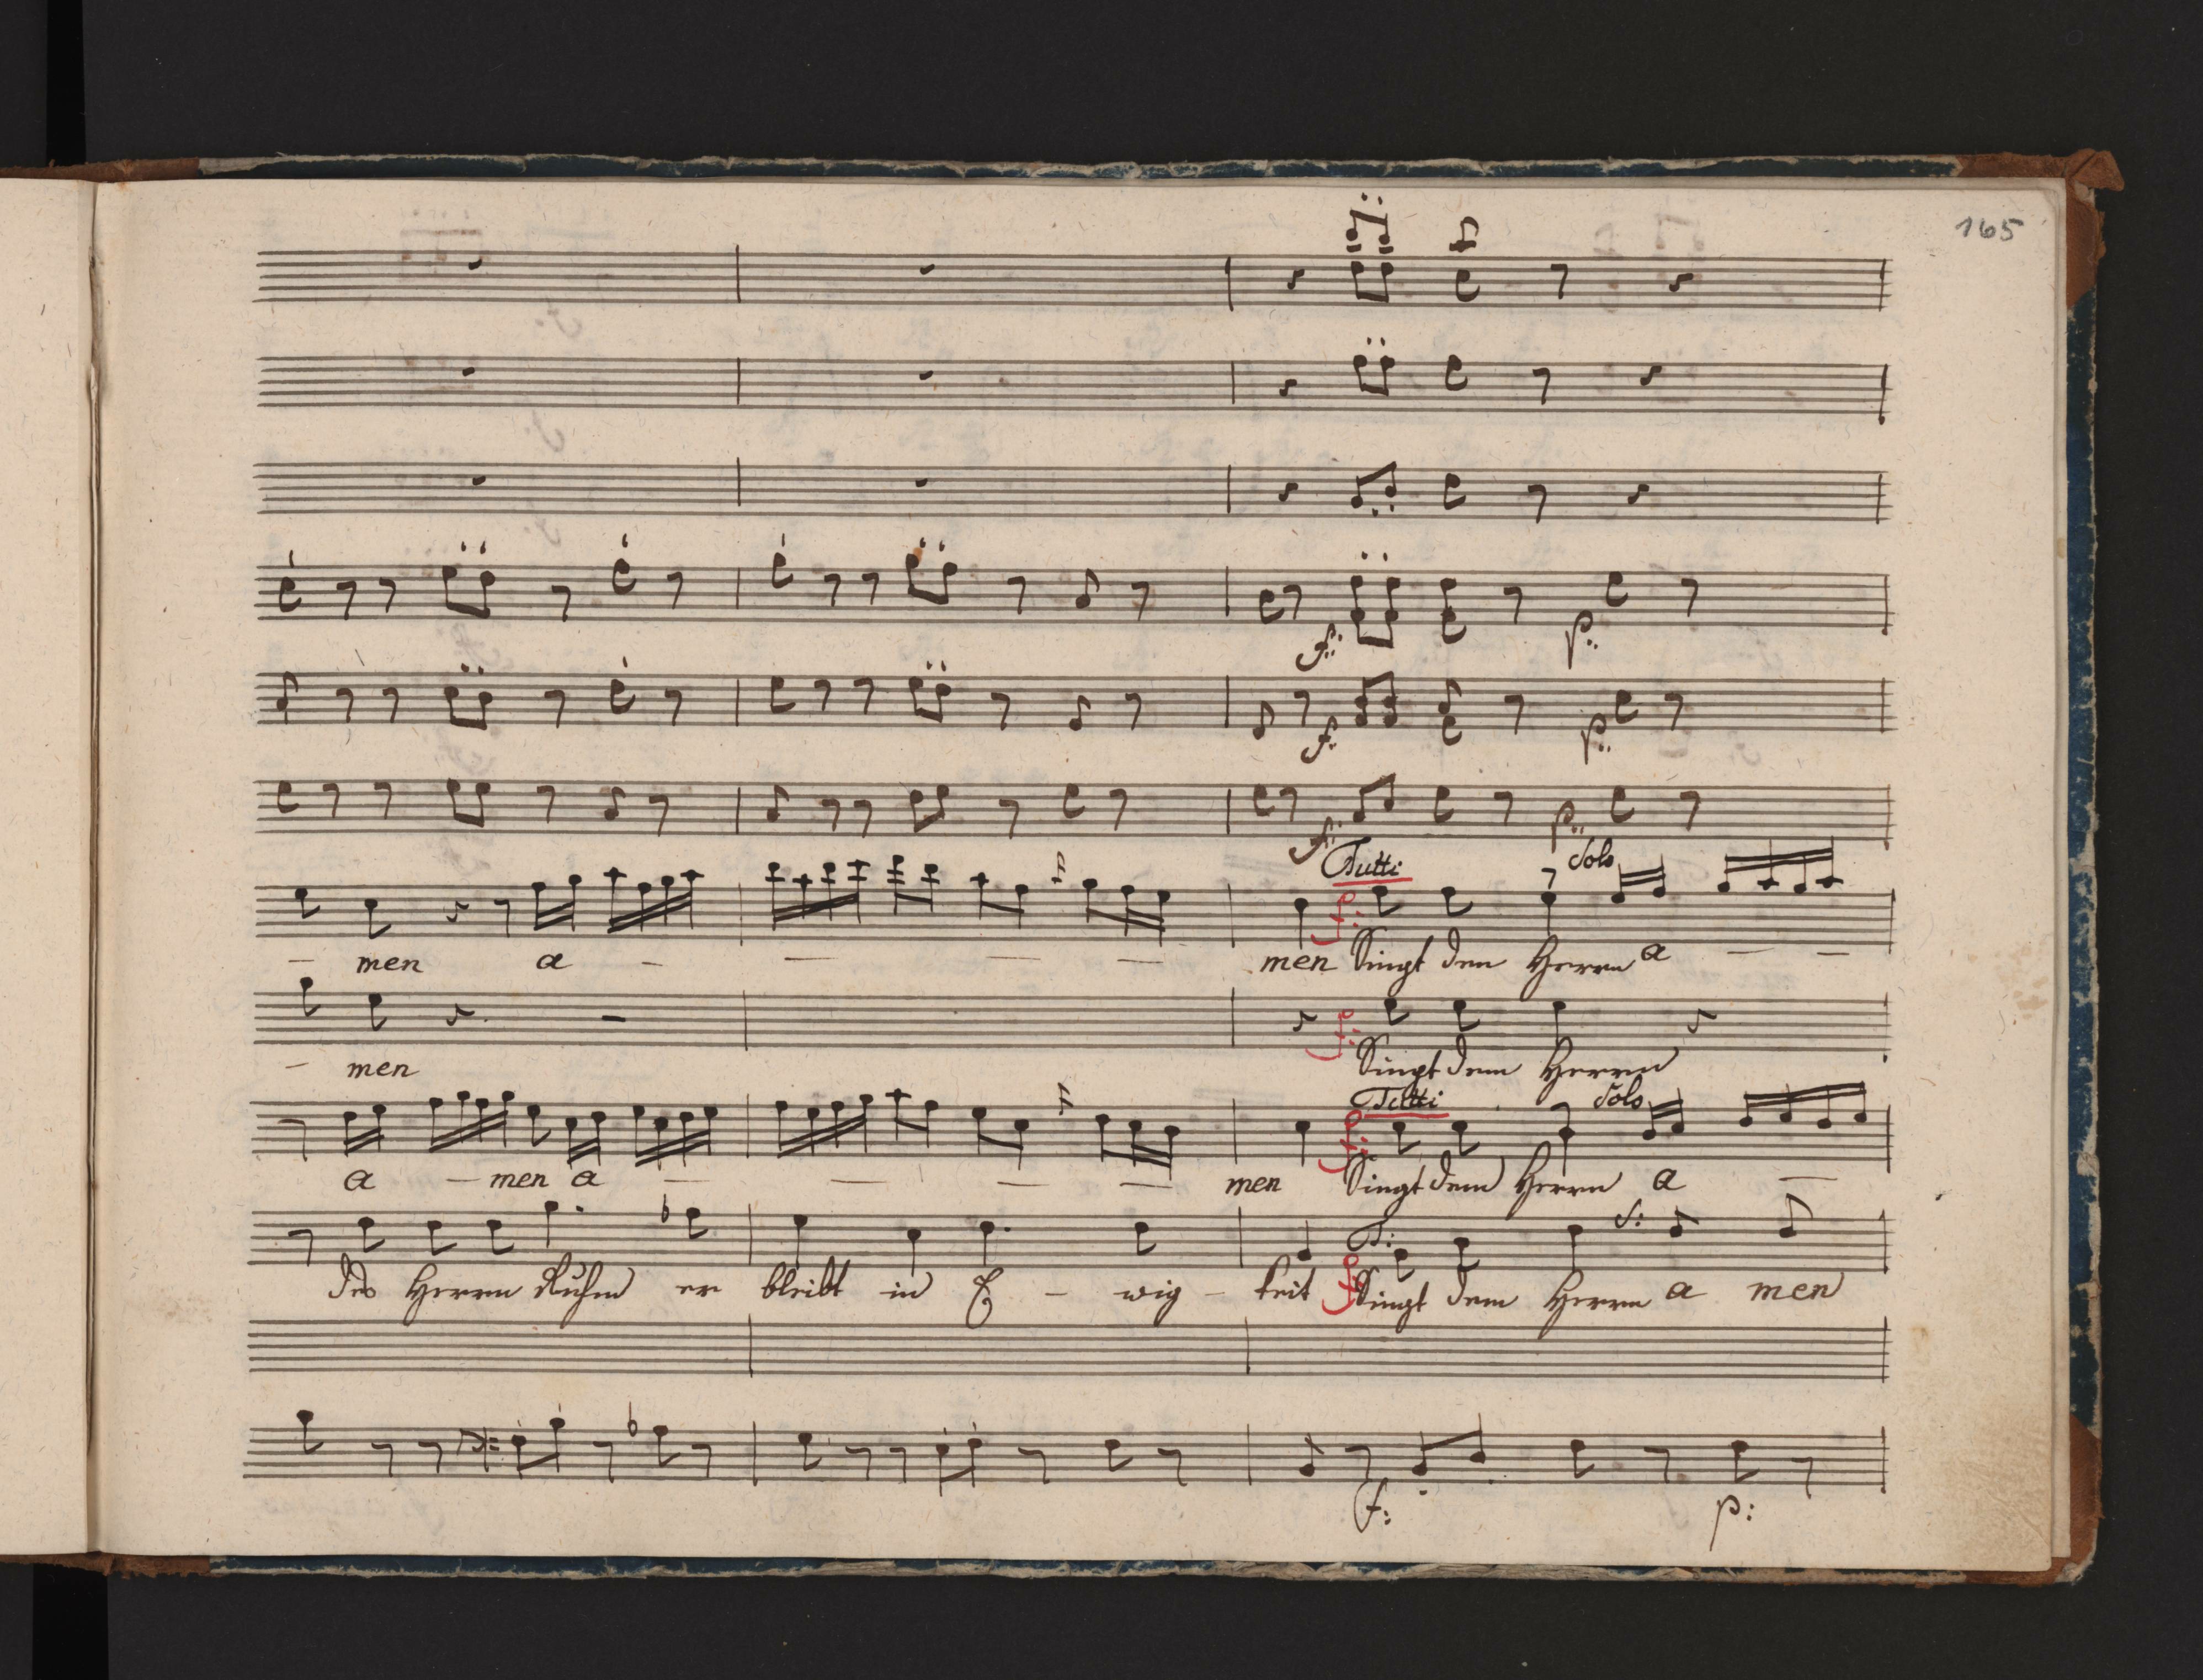 165
f: p:
f: p:
f: p:
Tutti Solo
f:
– men a – – – – men Singt dem Herrn a – –
f:
– men Singt dem Herrn
Tutti Solo
f:
a – men a – – – – men Singt dem Herrn a –
T: S:
f:
des Herrn Ruhm er bleibt in E – wig – keit Singt dem Herrn a men
f: p: